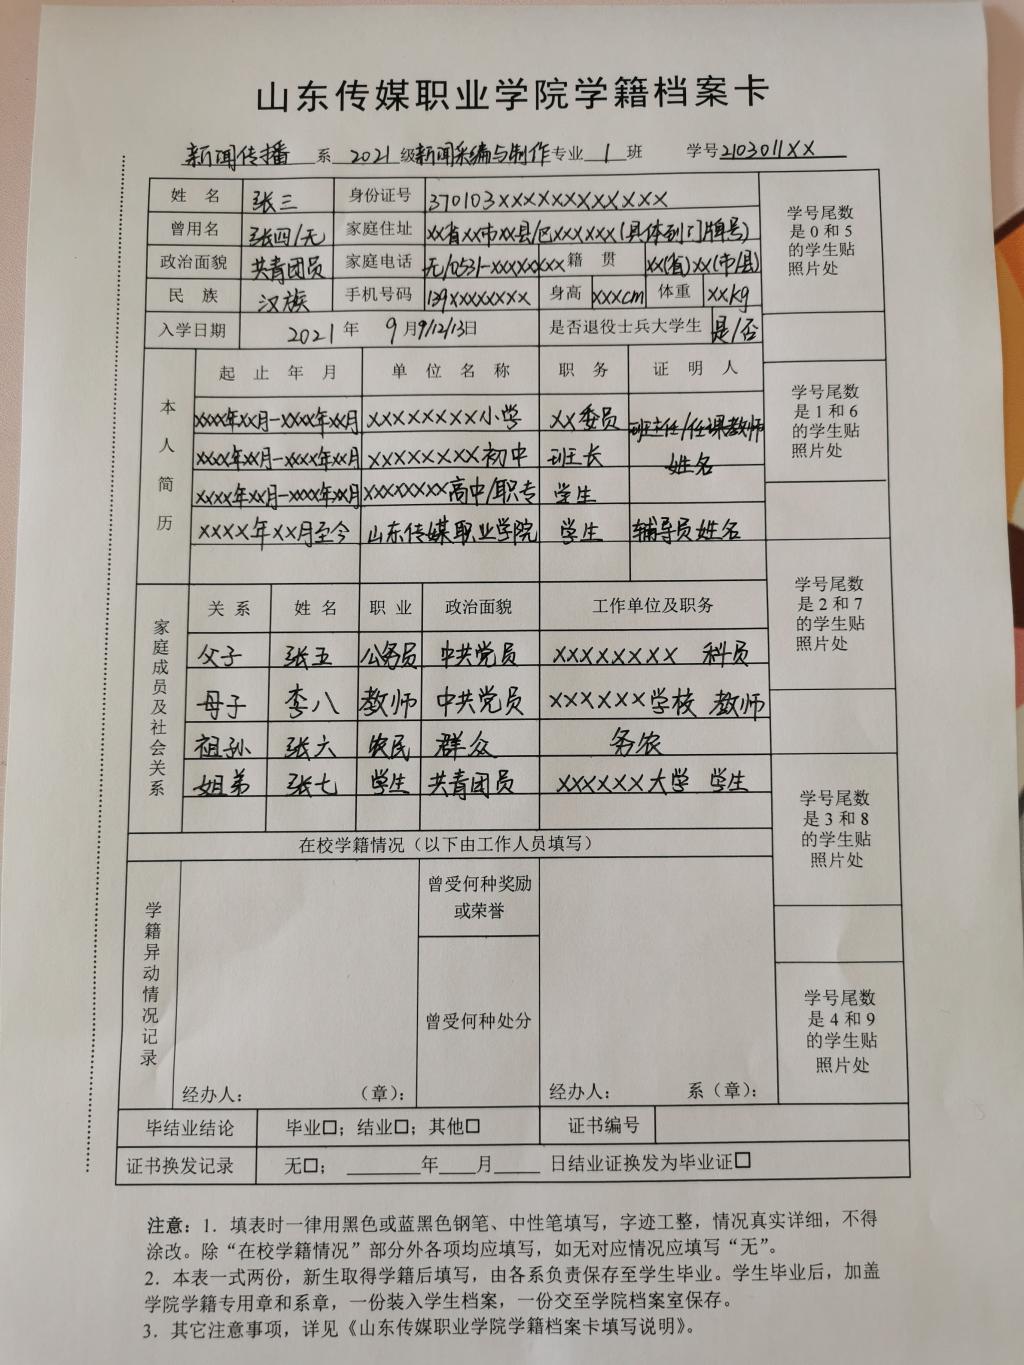 山东传媒职业学院学籍档案卡
新闻传播 系 2021 级新闻采编与制作专业 1 班 学号2103011XX
姓 名 张三 身份证号 370103XXXXXXXXXXXX
曾用名 张四/无 家庭住址 XX省XX市XX县/区XXXXXX(具体到门牌号)
政治面貌 共青团员 家庭电话 无/0531-XXXXXXXX 籍 贯 XX(省)XX(市/县)
民 族 汉族 手机号码 139XXXXXXXX 身高 XXXcm 体重 XXkg
学号尾数
是 0 和 5
的学生贴
照片处
入学日期 2021 年 9 月9/12/13日 是否退役士兵大学生 是/否
本人简历
起 止 年 月 单 位 名 称 职 务 证 明 人
XXXX年XX月-XXXX年XX月 XXXXXXXX小学 XX委员 班主任/任课教师
XXXX年XX月-XXXX年XX月 XXXXXXXX初中 班长 姓名
XXXX年XX月-XXXX年XX月 XXXXXXXX高中/职专 学生
XXXX年XX月至今 山东传媒职业学院 学生 辅导员姓名
学号尾数
是 1 和 6
的学生贴
照片处
家庭成员及社会关系
关 系 姓 名 职 业 政治面貌 工作单位及职务
父子 张五 公务员 中共党员 XXXXXXXX 科员
母子 李八 教师 中共党员 XXXXXX学校 教师
祖孙 张六 农民 群众 务农
姐弟 张七 学生 共青团员 XXXXXX大学 学生
学号尾数
是 2 和 7
的学生贴
照片处
在校学籍情况（以下由工作人员填写）
学号尾数
是 3 和 8
的学生贴
照片处
学籍异动情况记录
曾受何种奖励
或荣誉
曾受何种处分
经办人： （章）：
经办人： 系（章）：
学号尾数
是 4 和 9
的学生贴
照片处
毕结业结论 毕业□；结业□；其他□ 证书编号
证书换发记录 无□； ________年____月_____ 日结业证换发为毕业证□
注意：1．填表时一律用黑色或蓝黑色钢笔、中性笔填写，字迹工整，情况真实详细，不得
涂改。除“在校学籍情况”部分外各项均应填写，如无对应情况应填写“无”。
2．本表一式两份，新生取得学籍后填写，由各系负责保存至学生毕业。学生毕业后，加盖
学院学籍专用章和系章，一份装入学生档案，一份交至学院档案室保存。
3．其它注意事项，详见《山东传媒职业学院学籍档案卡填写说明》。